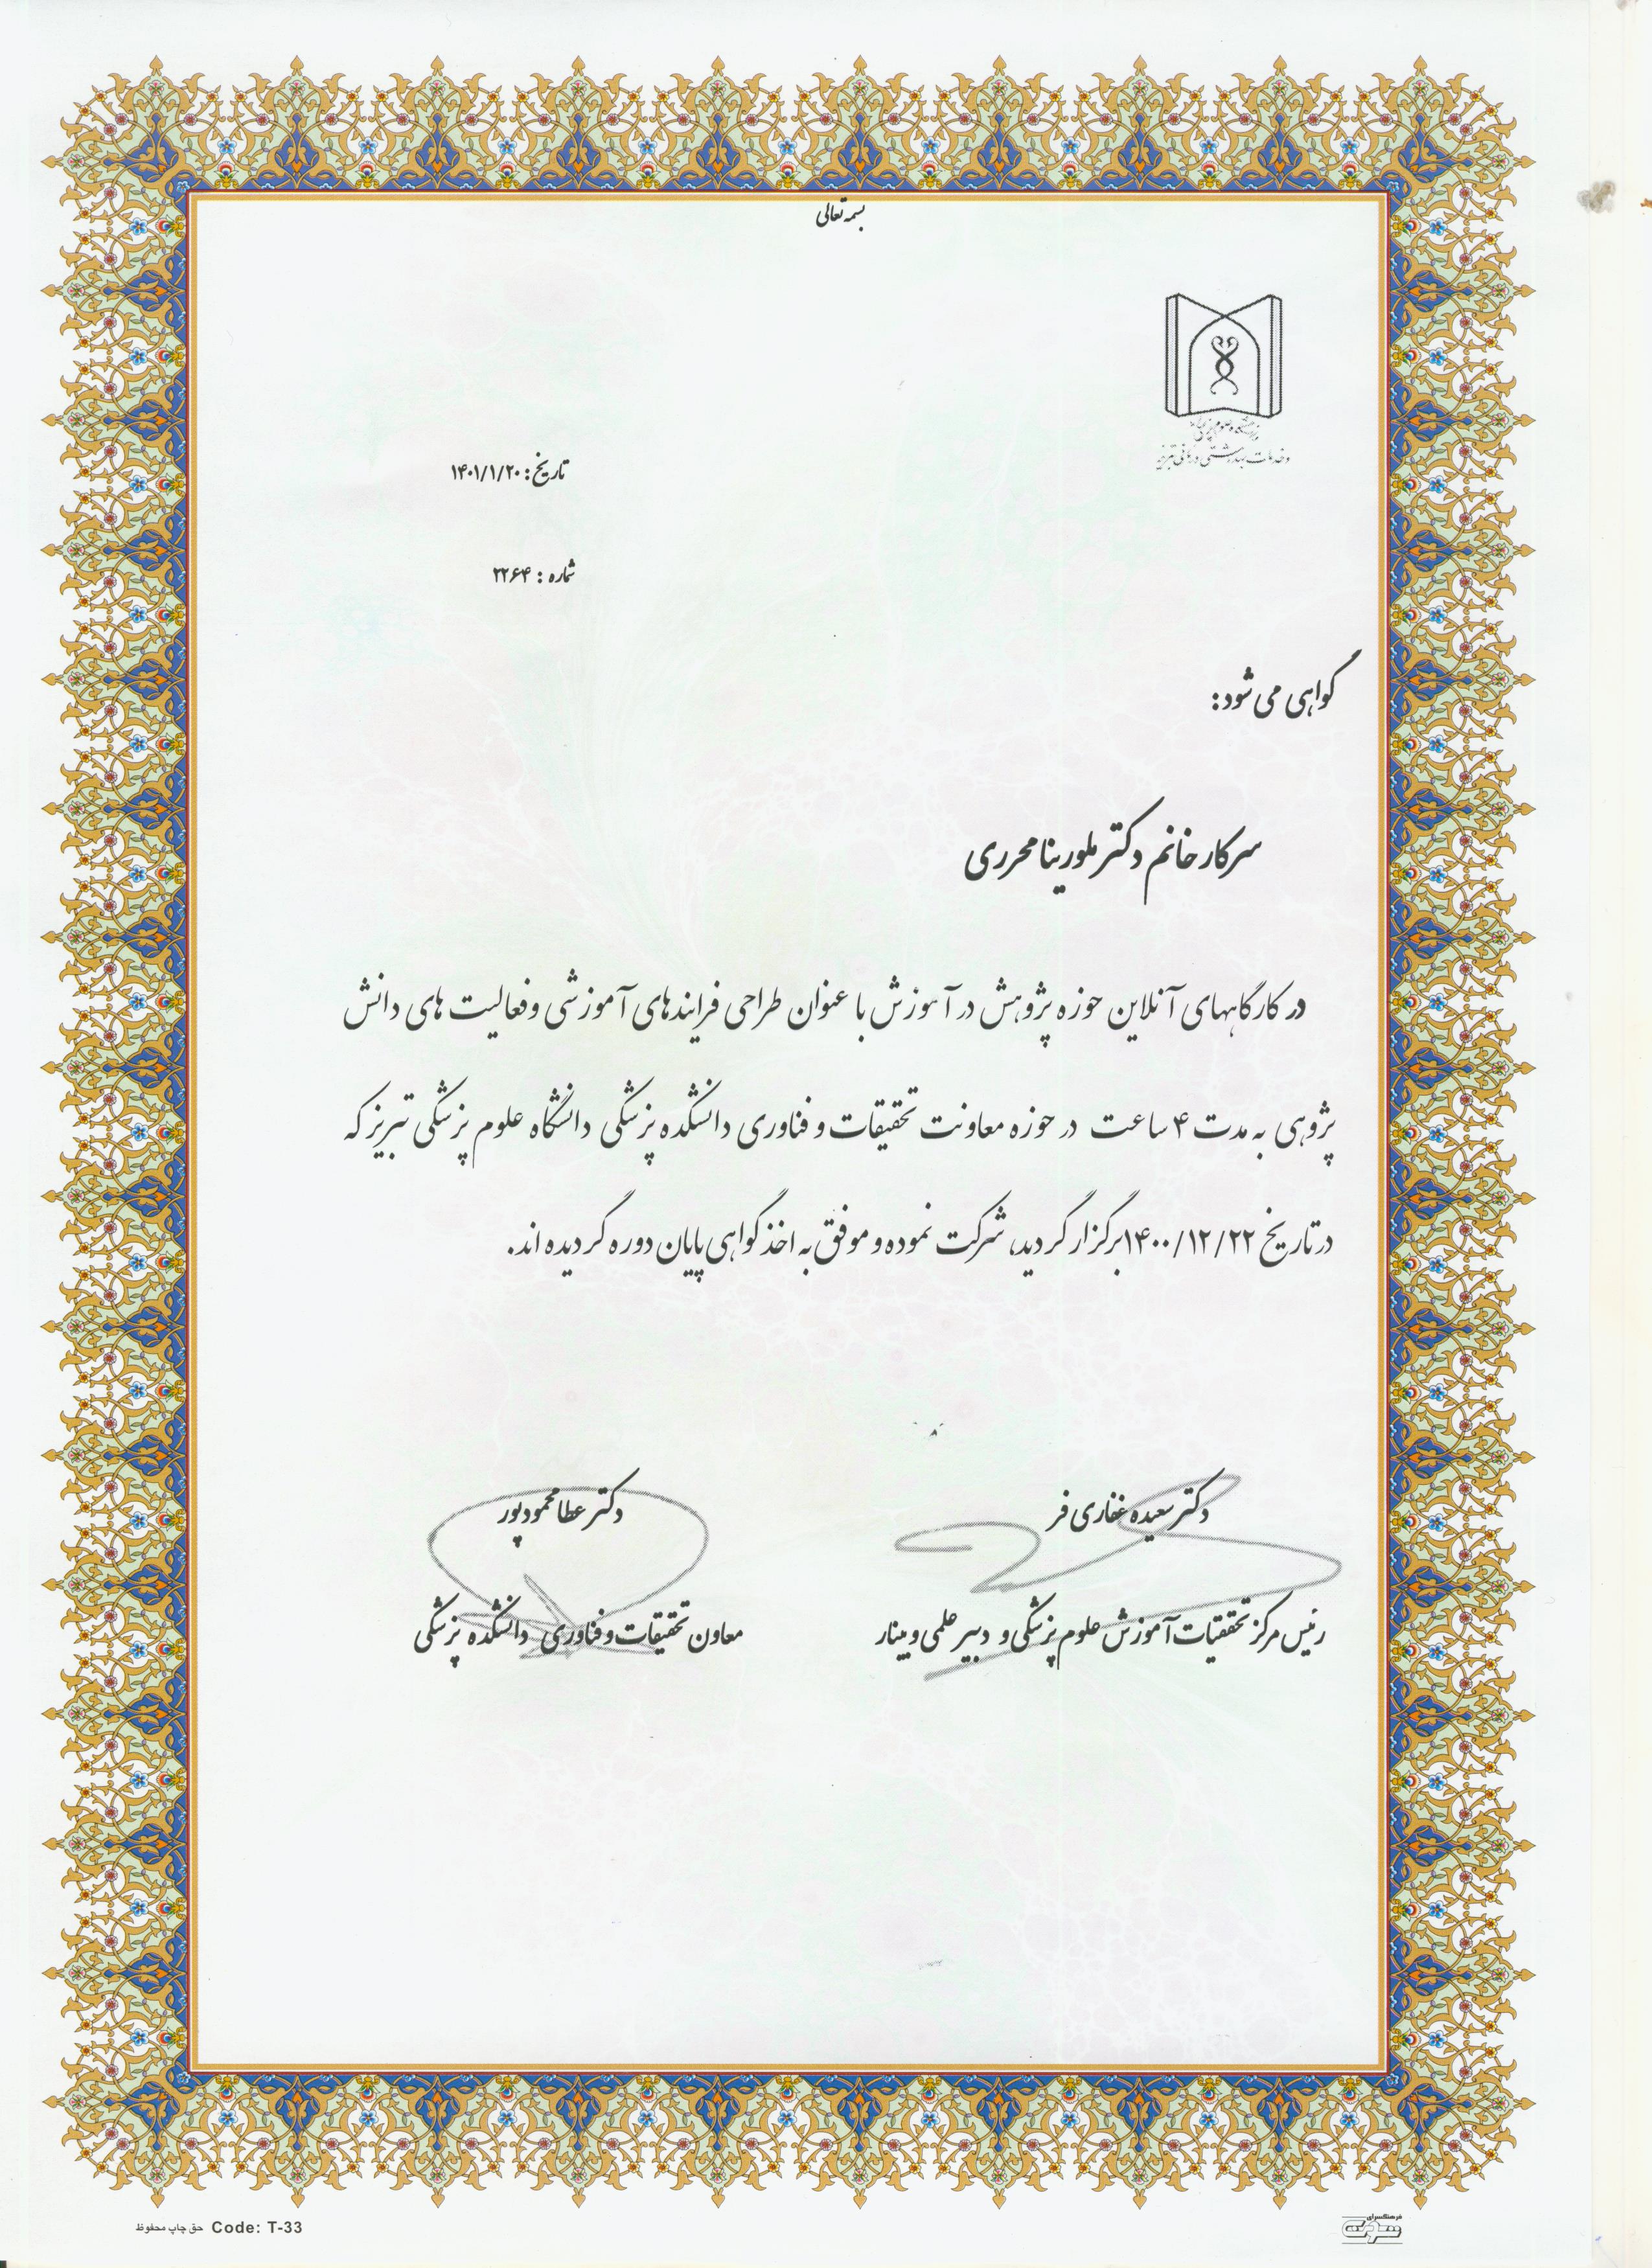 بسمه تعالی
دانشگاه علوم پزشکی
و خدمات بهداشتی درمانی تبریز
تاریخ: ۱۴۰۱/۱/۲۰
شماره: ۲۲۶۴
گواهی می شود:
سرکار خانم دکتر ملورینا محرری
در کارگاههای آنلاین حوزه پژوهش در آموزش با عنوان طراحی فرایندهای آموزشی و فعالیت های دانش
پژوهی به مدت ۴ ساعت در حوزه معاونت تحقیقات و فناوری دانشکده پزشکی دانشگاه علوم پزشکی تبریز که
در تاریخ ۱۴۰۰/۱۲/۲۲ برگزار گردید، شرکت نموده و موفق به اخذ گواهی پایان دوره گردیده اند.
دکتر سعیده غفاری فر
رئیس مرکز تحقیقات آموزش علوم پزشکی و دبیر علمی وبینار
دکتر عطا محمودپور
معاون تحقیقات و فناوری دانشکده پزشکی
Code: T-33 حق چاپ محفوظ
فرهنگسرای